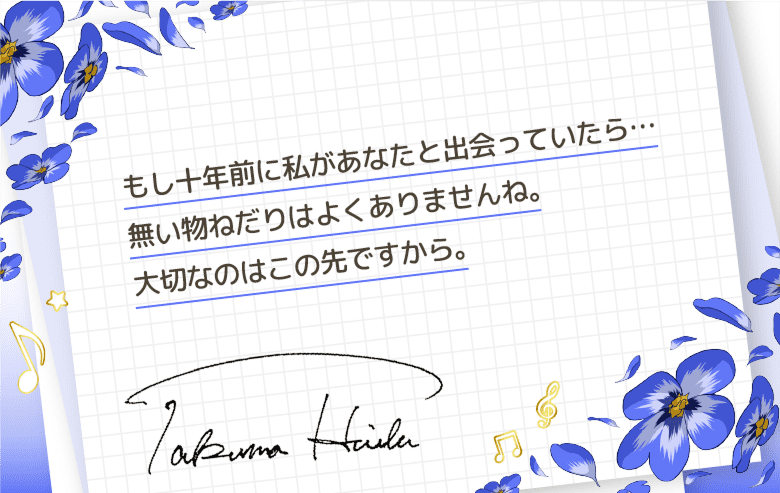 もし十年前に私があなたと出会っていたら…
無い物ねだりはよくありませんね。
大切なのはこの先ですから。
Takuma